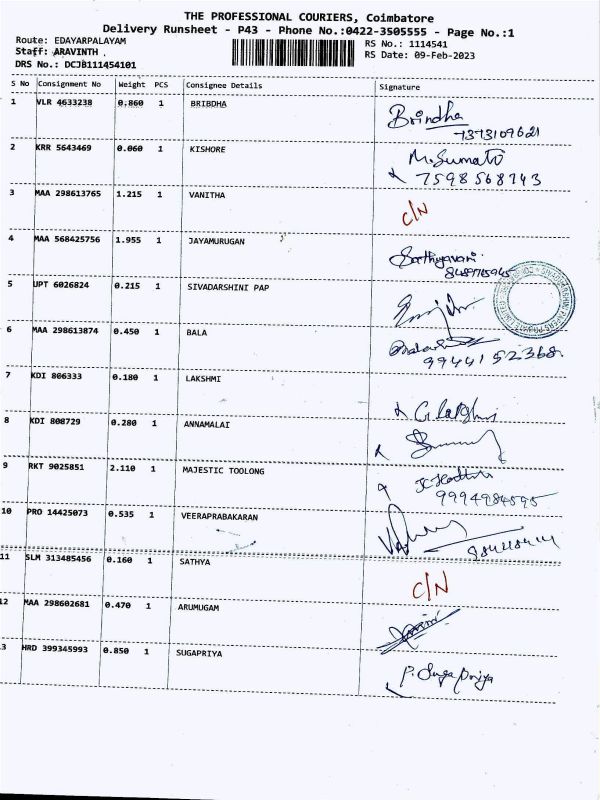 THE PROFESSIONAL COURIERS, Coimbatore
Delivery Runsheet - P43 - Phone No.:0422-3505555 - Page No.:1
Route: EDAYARPALAYAM
RS No.: 1114541
Staff: ARAVINTH .
RS Date: 09-Feb-2023
DRS No.: DCJB111454101
S No Consignment No Weight PCS Consignee Details Signature
1 VLR 4633238 0.860 1 BRIBDHA Brindha
7373109621
2 KRR 5643469 0.060 1 KISHORE M.Sumathi
7598568743
3 MAA 298613765 1.215 1 VANITHA C/N
4 MAA 568425756 1.955 1 JAYAMURUGAN
5 UPT 6026824 0.215 1 SIVADARSHINI PAP
6 MAA 298613874 0.450 1 BALA
9944152368
7 KDI 806333 0.180 1 LAKSHMI
8 KDI 808729 0.280 1 ANNAMALAI
9 RKT 9025851 2.110 1 MAJESTIC TOOLONG
9994984595
10 PRO 14425073 0.535 1 VEERAPRABAKARAN
11 SLM 313485456 0.160 1 SATHYA C/N
12 MAA 298602681 0.470 1 ARUMUGAM
3 HRD 399345993 0.850 1 SUGAPRIYA P. Suga priya